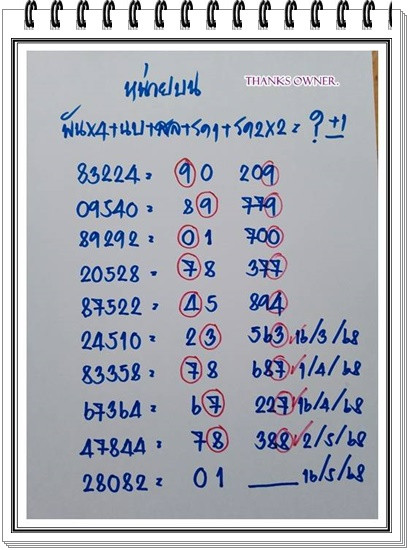 THANKS OWNER.
หน่วยบน
พันx4+นบ+ลล+รด1+รด2x2= ? +1
83224= 90 209
09540= 89 779
89292= 01 700
20528= 78 377
87522= 45 894
24510= 23 563 16/3/68
83358= 78 687 1/4/68
67364= 67 227 16/4/68
47844= 78 388 2/5/68
28082= 01 ___ 16/5/68